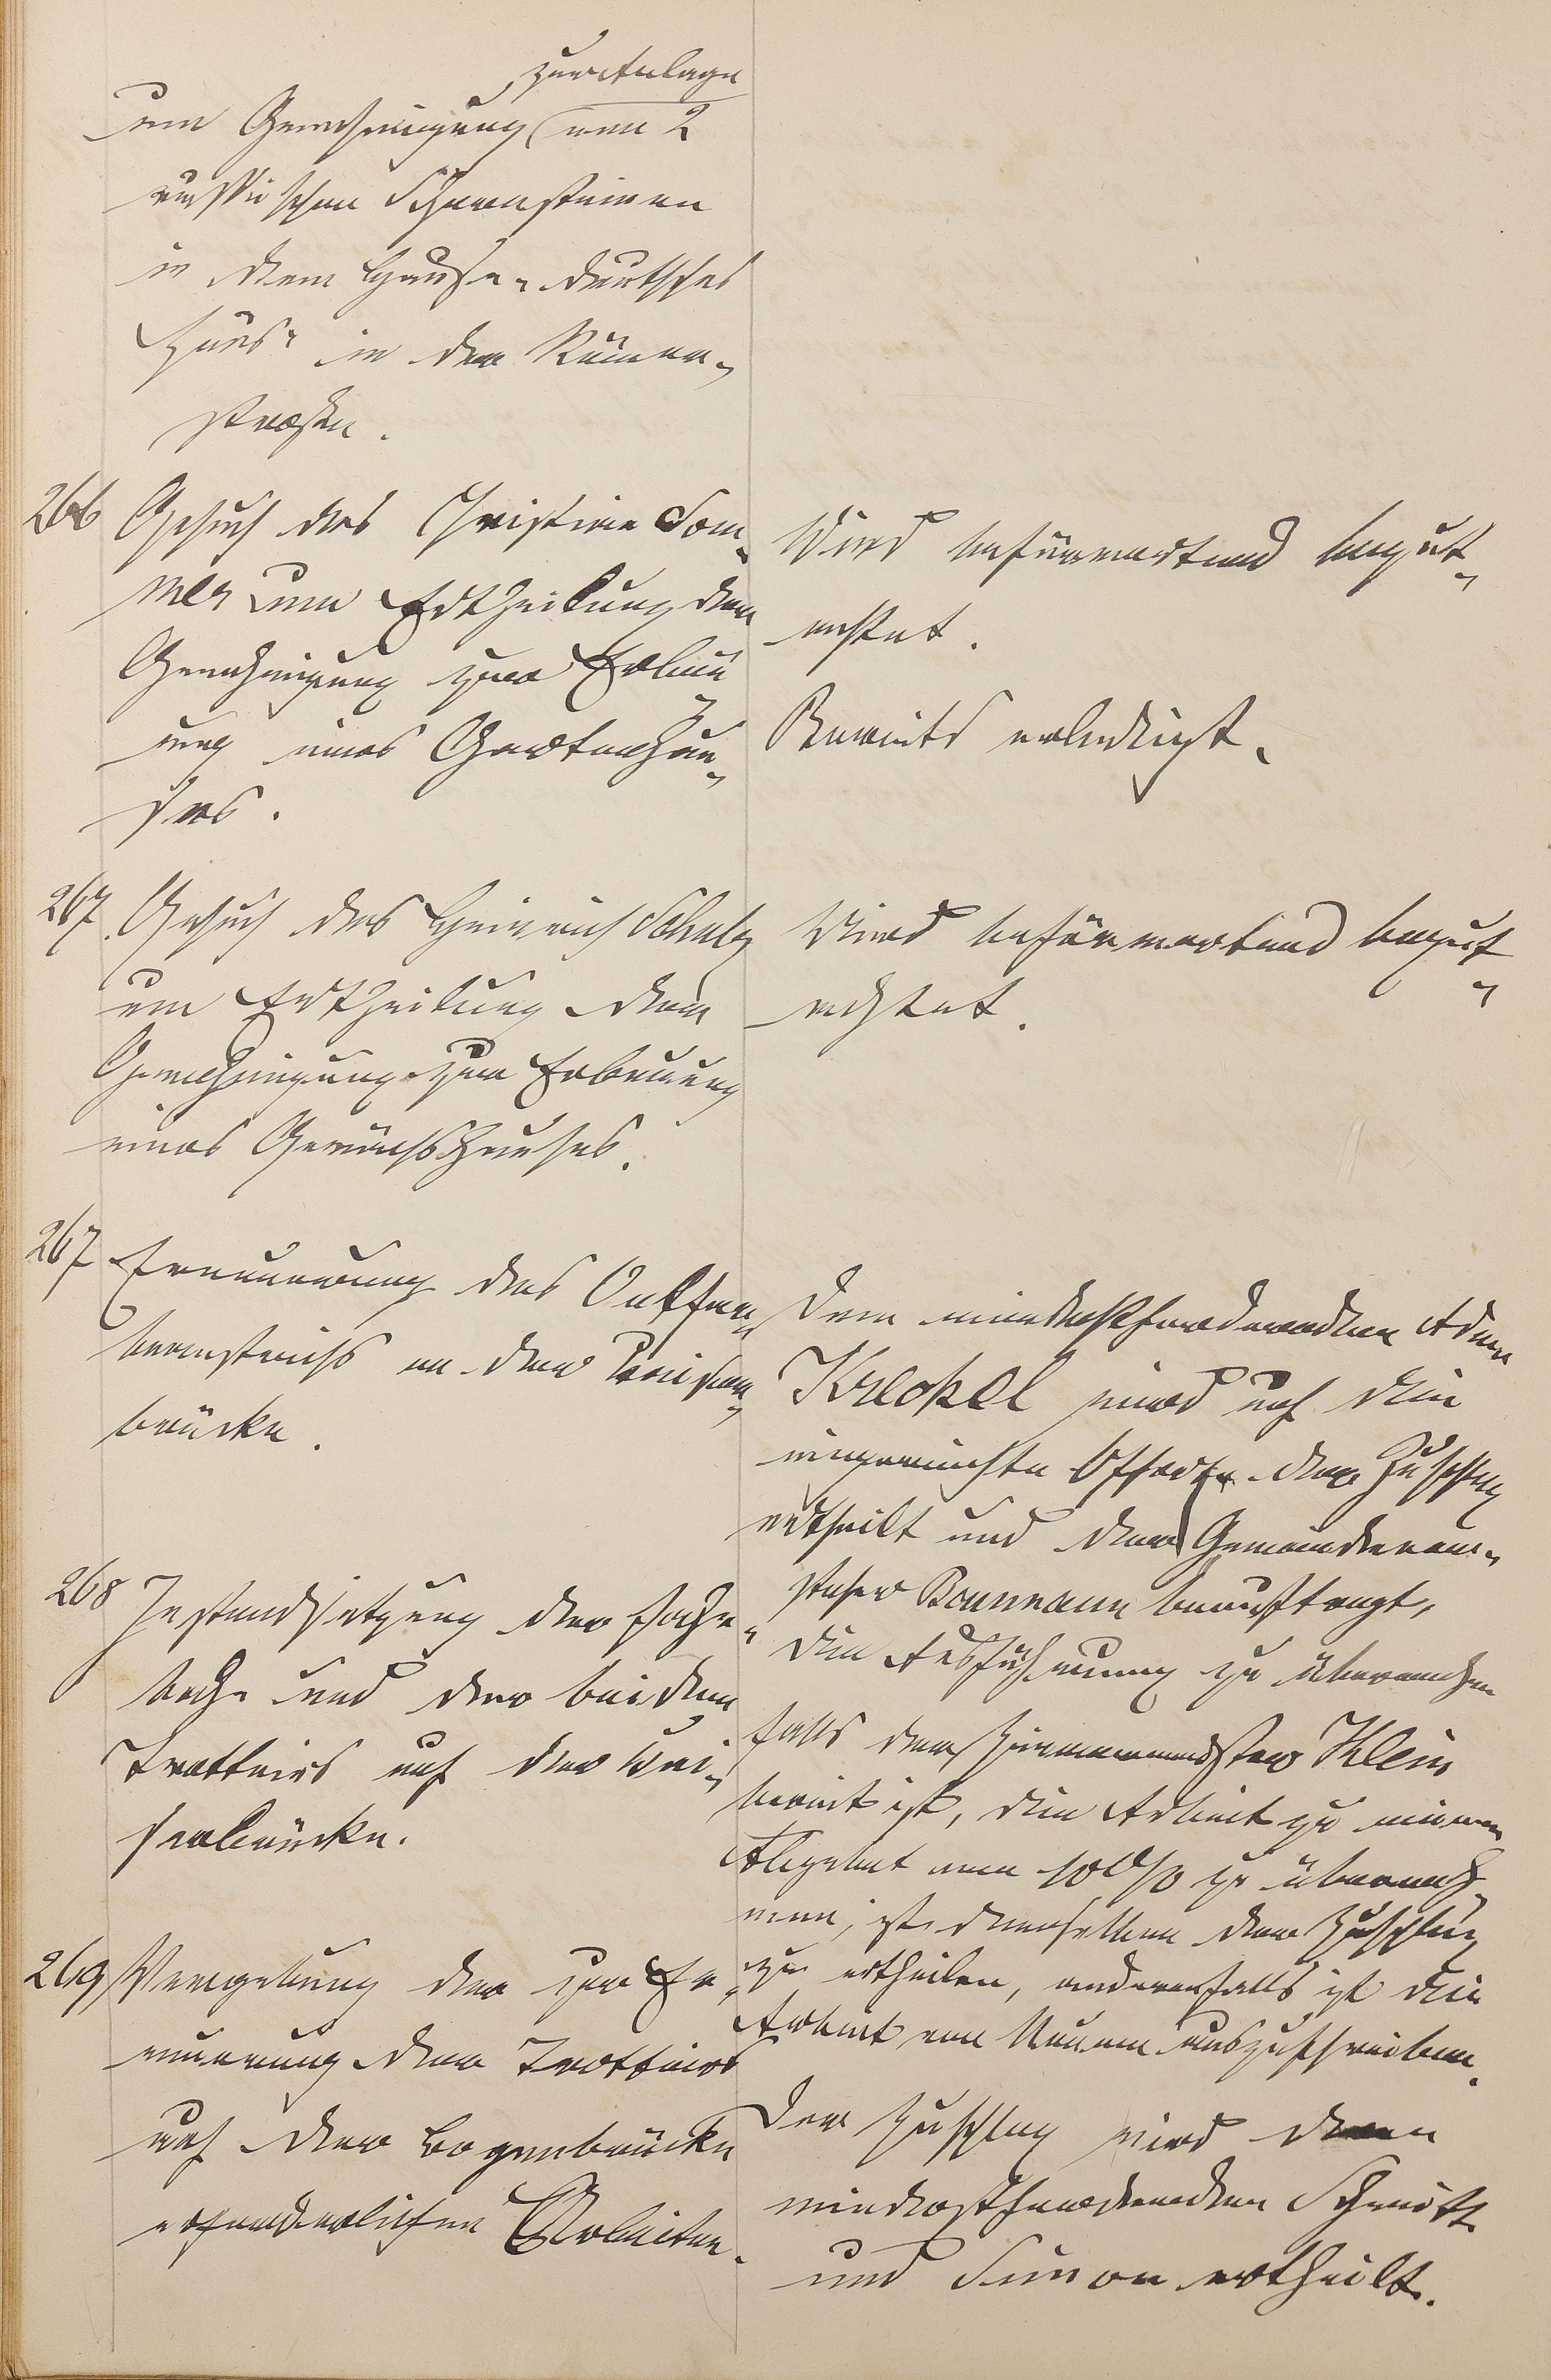 zur Anlage
um Genehmigung von 2
russischen Schornsteinen
in dem Hause "deutsches
Haus" in der Römer-
straße.
266 Gesuch des Christian Som-
mer um Ertheilung der
Genehmigung zur Erbau-
ung eines Gartenhau-
ses.
Wird befürwortend begut-
achtet.
Bereits erledigt.
267 Gesuch des Heinrich Schulz
um Ertheilung der
Genehmigung zur Erbauung
eines Gewächshauses.
Wird befürwortend begut-
achtet.
267 Erneuerung des Oelfar-
benanstrichs an der Kaiser-
brücke.
Dem mindestfordernden Adam
Kreckel wird auf die
eingereichte Offerte der Zuschlag
ertheilt und der Gemeindevor-
steher beauftragt,
die Ausführung zu überwachen
268 Instandsetzung der Fahr-
bahn und der beiden
Trottoirs auf der Kai-
serbrücke.
Falls der Klein
bereit ist, die Arbeit zu einem
Abgebot von 10% zu überneh-
men, ist demselben der Zuschlag
zu ertheilen, anderenfalls ist die
Arbeit von Neuem auszuschreiben.
269 Vergebung der zur Er-
neuerung der Trottoirs
auf der Bogenbrücke
erforderlichen Arbeiten.
Der Zuschlag wird den
mindestfordernden Schmitt
und Simon ertheilt.